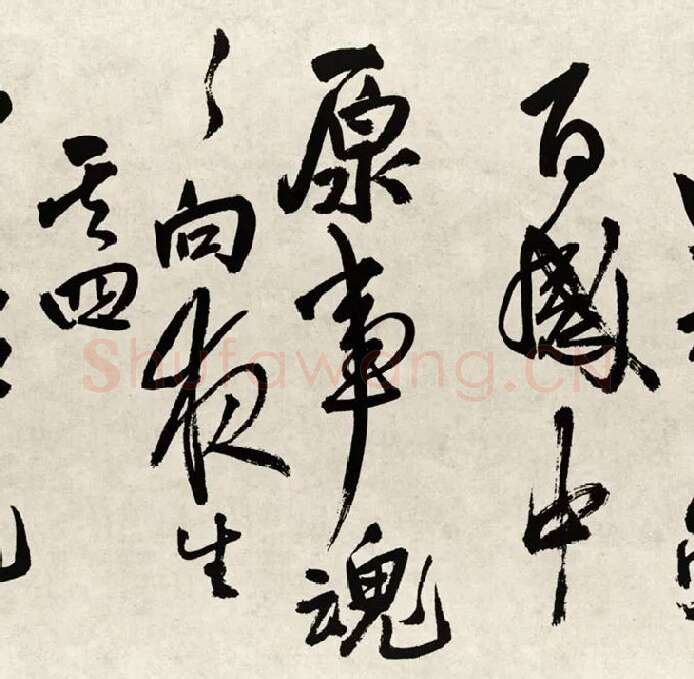 百感中
原事魂
〻向夜生
其四
Shufawang.CN